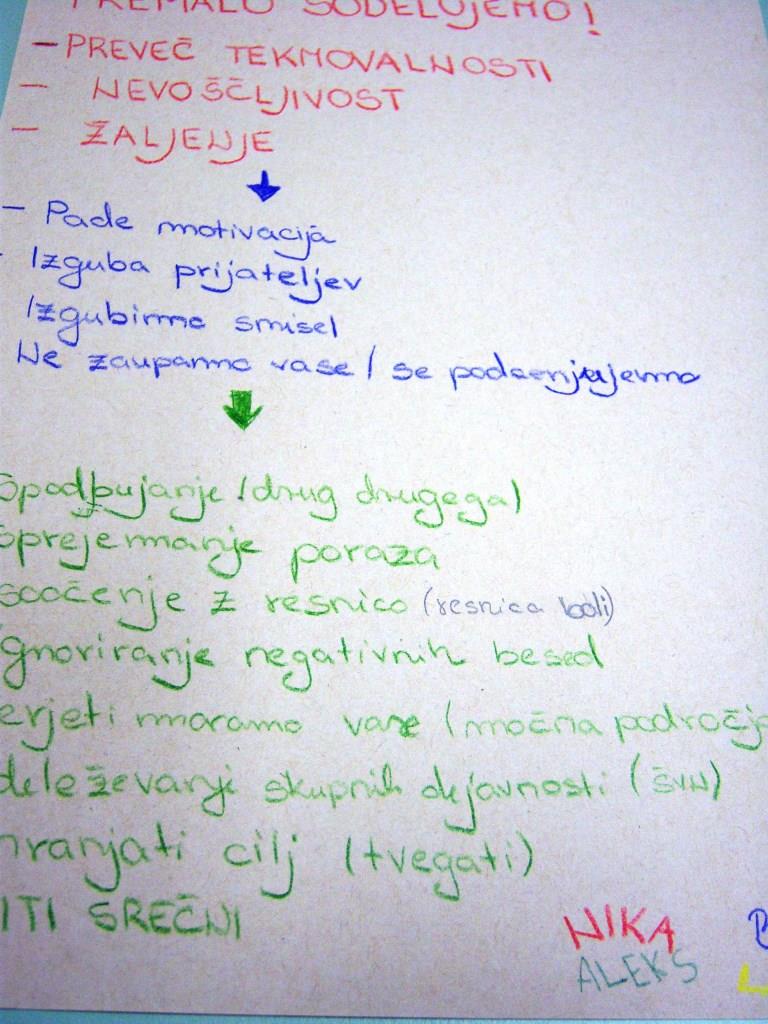 PREMALO SODELUJEMO!
- PREVEČ TEKMOVALNOSTI
- NEVOŠČLJIVOST
- ŽALJENJE
- Pade motivacija
- Izguba prijateljev
Izgubimo smisel
Ne zaupamo vase / se podcenjujemo
Spodbujanje (drug drugega)
Sprejemanje poraza
Soočenje z resnico (resnica boli)
Ignoriranje negativnih besed
erjeti moramo vase (močna področja
deleževanje skupnih dejavnosti (ŠVN)
hranjati cilj (tvegati)
ITI SREČNI
NIKA
ALEKS